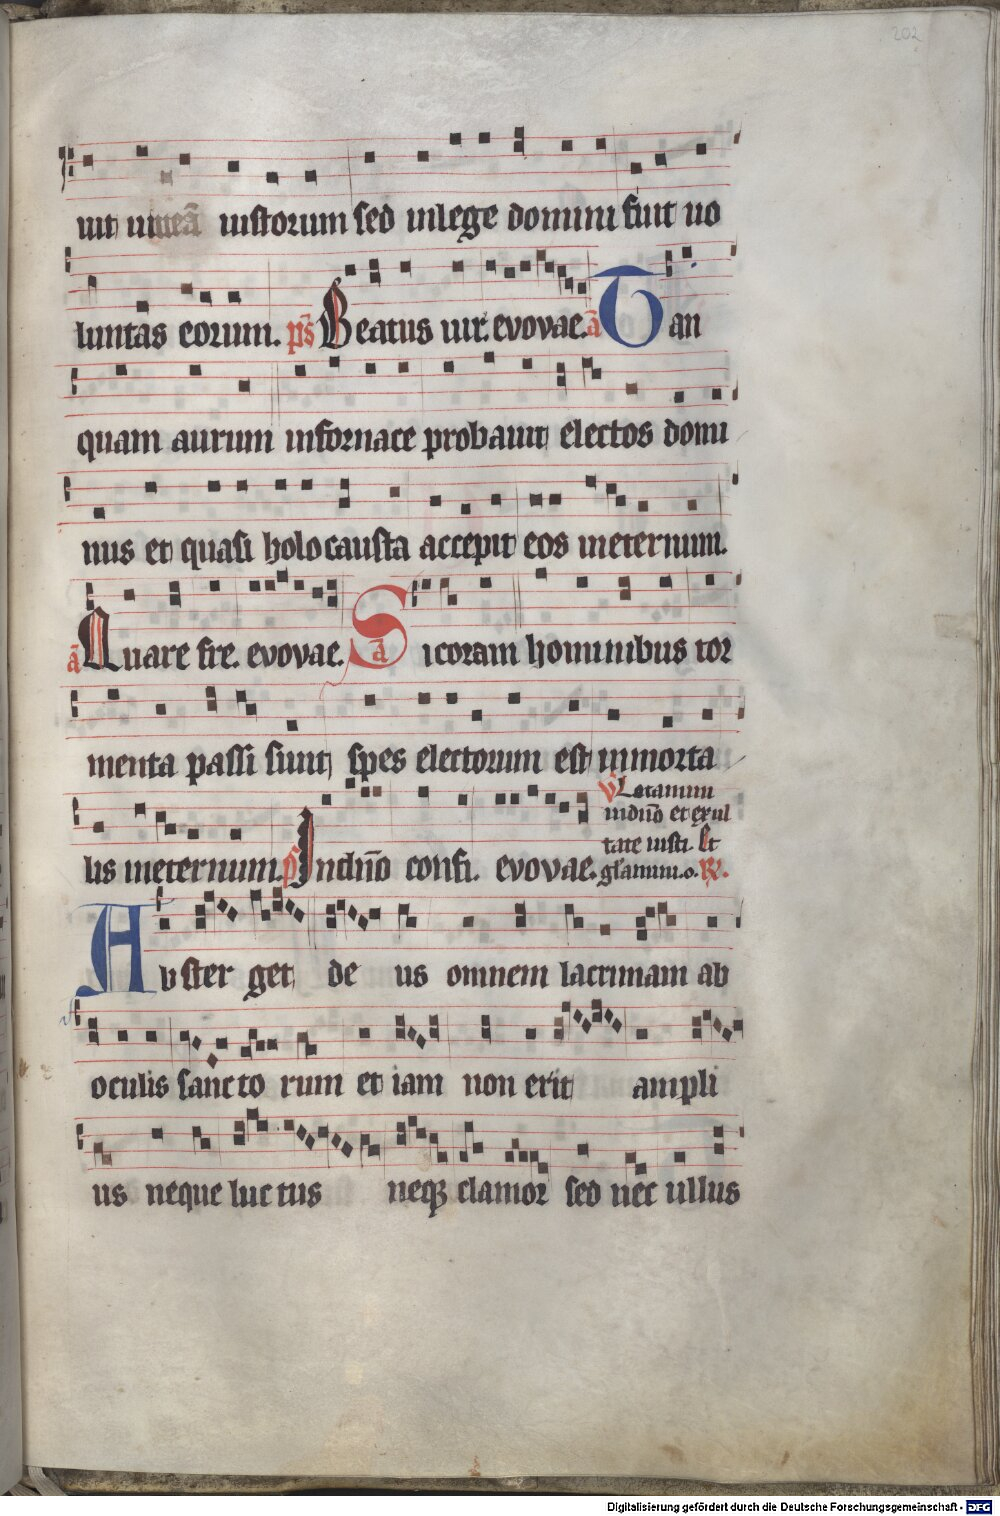 202
uit in uieā iustorum sed in lege domini fuit uo
luntas eorum. p̄s Beatus uir. evovae. ā Tan
quam aurum in fornace probauit electos domi
nus et quasi holocausta accepit eos in eternum.
ā Quare fre. evovae. ā Sicoram hominibus tor
menta passi sunt spes electorum est inmorta
lis in eternum. p̄ In dn̄o confi. evovae.
V Letamini
in dn̄o et exul
tate iusti. Et
gl̄amini. o. R.
Abster get de us omnem lacrimam ab
oculis sancto rum et iam non erit ampli
us neque luctus neqꝫ clamor sed nec ullus
Digitalisierung gefördert durch die Deutsche Forschungsgemeinschaft - DFG